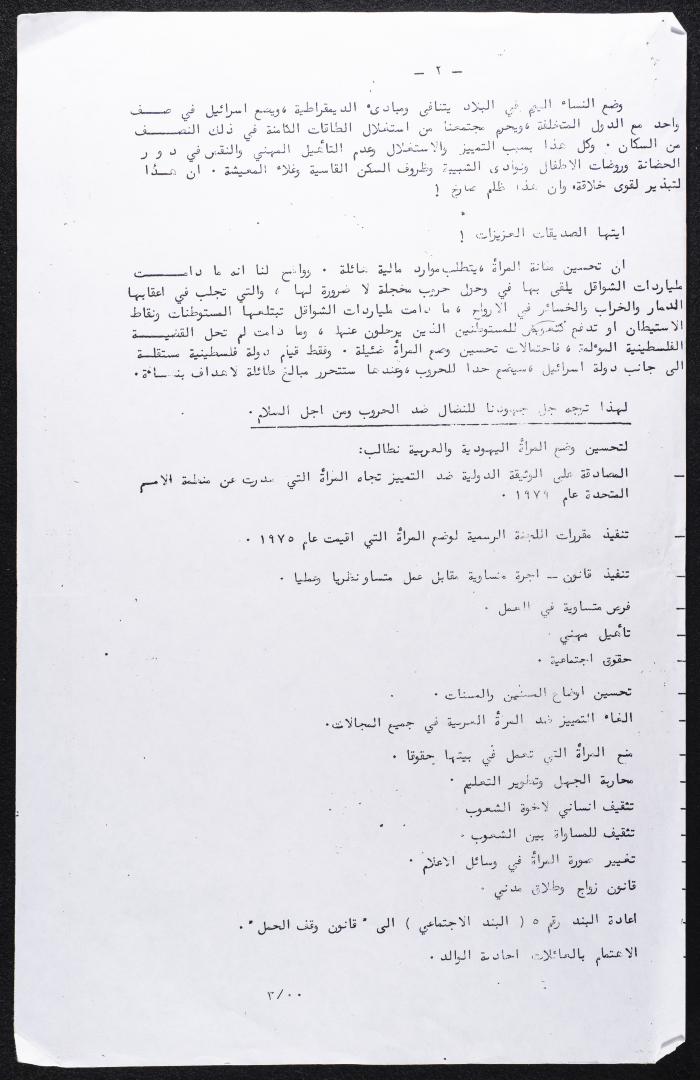 — ٢ —
وضع النساء اليوم في البلاد يتنافى ومبادىء الديمقراطية ،ويضع اسرائيل في صف
واحد مع الدول المتخلفة ،ويحرم مجتمعنا من استغلال الطاقات الكامنة في ذلك النصف
من السكان ٠ وكل هذا بسبب التمييز والاستغلال وعدم التأهيل المهني والنقص في دور
الحضانة وروضات الاطفال ونوادى الشبيبة وظروف السكن القاسية وغلاء المعيشة ٠ ان هذا
لتبذير لقوى خلاقة، وان هذا ظلم صارخ !
ايتها الصديقات العزيزات !
ان تحسين مكانة المرأة ،يتطلب موارد مالية هائلة ٠ وواضح لنا انه ما دامت
ملياردات الشواقل يلقى بها في وحول حروب مخجلة لا ضرورة لها ، والتي تجلب في اعقابها
الدمار والخراب والخسائر في الارواح ، ما دامت ملياردات الشواقل تبتلعها المستوطنات ونقاط
الاستيطان او تدفع كتعويض للمستوطنين الذين يرحلون عنها ، وما دامت لم تحل القضية
الفلسطينية المؤلمة ، فاحتمالات تحسين وضع المرأة ضئيلة ٠ وفقط قيام دولة فلسطينية مستقلة
الى جانب دولة اسرائيل ،سيضع حدا للحروب ،وعندها ستتحرر مبالغ طائلة لاهداف بناءة٠
لهذا نوجه جل جهودنا للنضال ضد الحروب ومن اجل السلام ٠
لتحسين وضع المرأة اليهودية والعربية نطالب:
— المصادقة على الوثيقة الدولية ضد التمييز تجاه المرأة التي صدرت عن منظمة الامم
المتحدة عام ١٩٧٩ ٠
— تنفيذ مقررات اللجنة الرسمية لوضع المرأة التي اقيمت عام ١٩٧٥ ٠
— تنفيذ قانون — اجرة متساوية مقابل عمل متساو نظريا وعمليا ٠
— فرص متساوية في العمل ٠
— تأهيل مهني
— حقوق اجتماعية ٠
— تحسين اوضاع المسنين والمسنات ٠
— الغاء التمييز ضد المرأة العربية في جميع المجالات٠
— منح المرأة التي تعمل في بيتها حقوقا ٠
— محاربة الجهل وتطوير التعليم ٠
— تثقيف انساني لاخوة الشعوب
— تثقيف للمساواة بين الشعوب ٠
— تغيير صورة المرأة في وسائل الاعلام ٠
— قانون زواج وطلاق مدني ٠
— اعادة البند رقم ٥ ( البند الاجتماعي ) الى " قانون وقف الحمل "٠
— الاهتمام بالعائلات احادية الوالد ٠
٣/٠٠